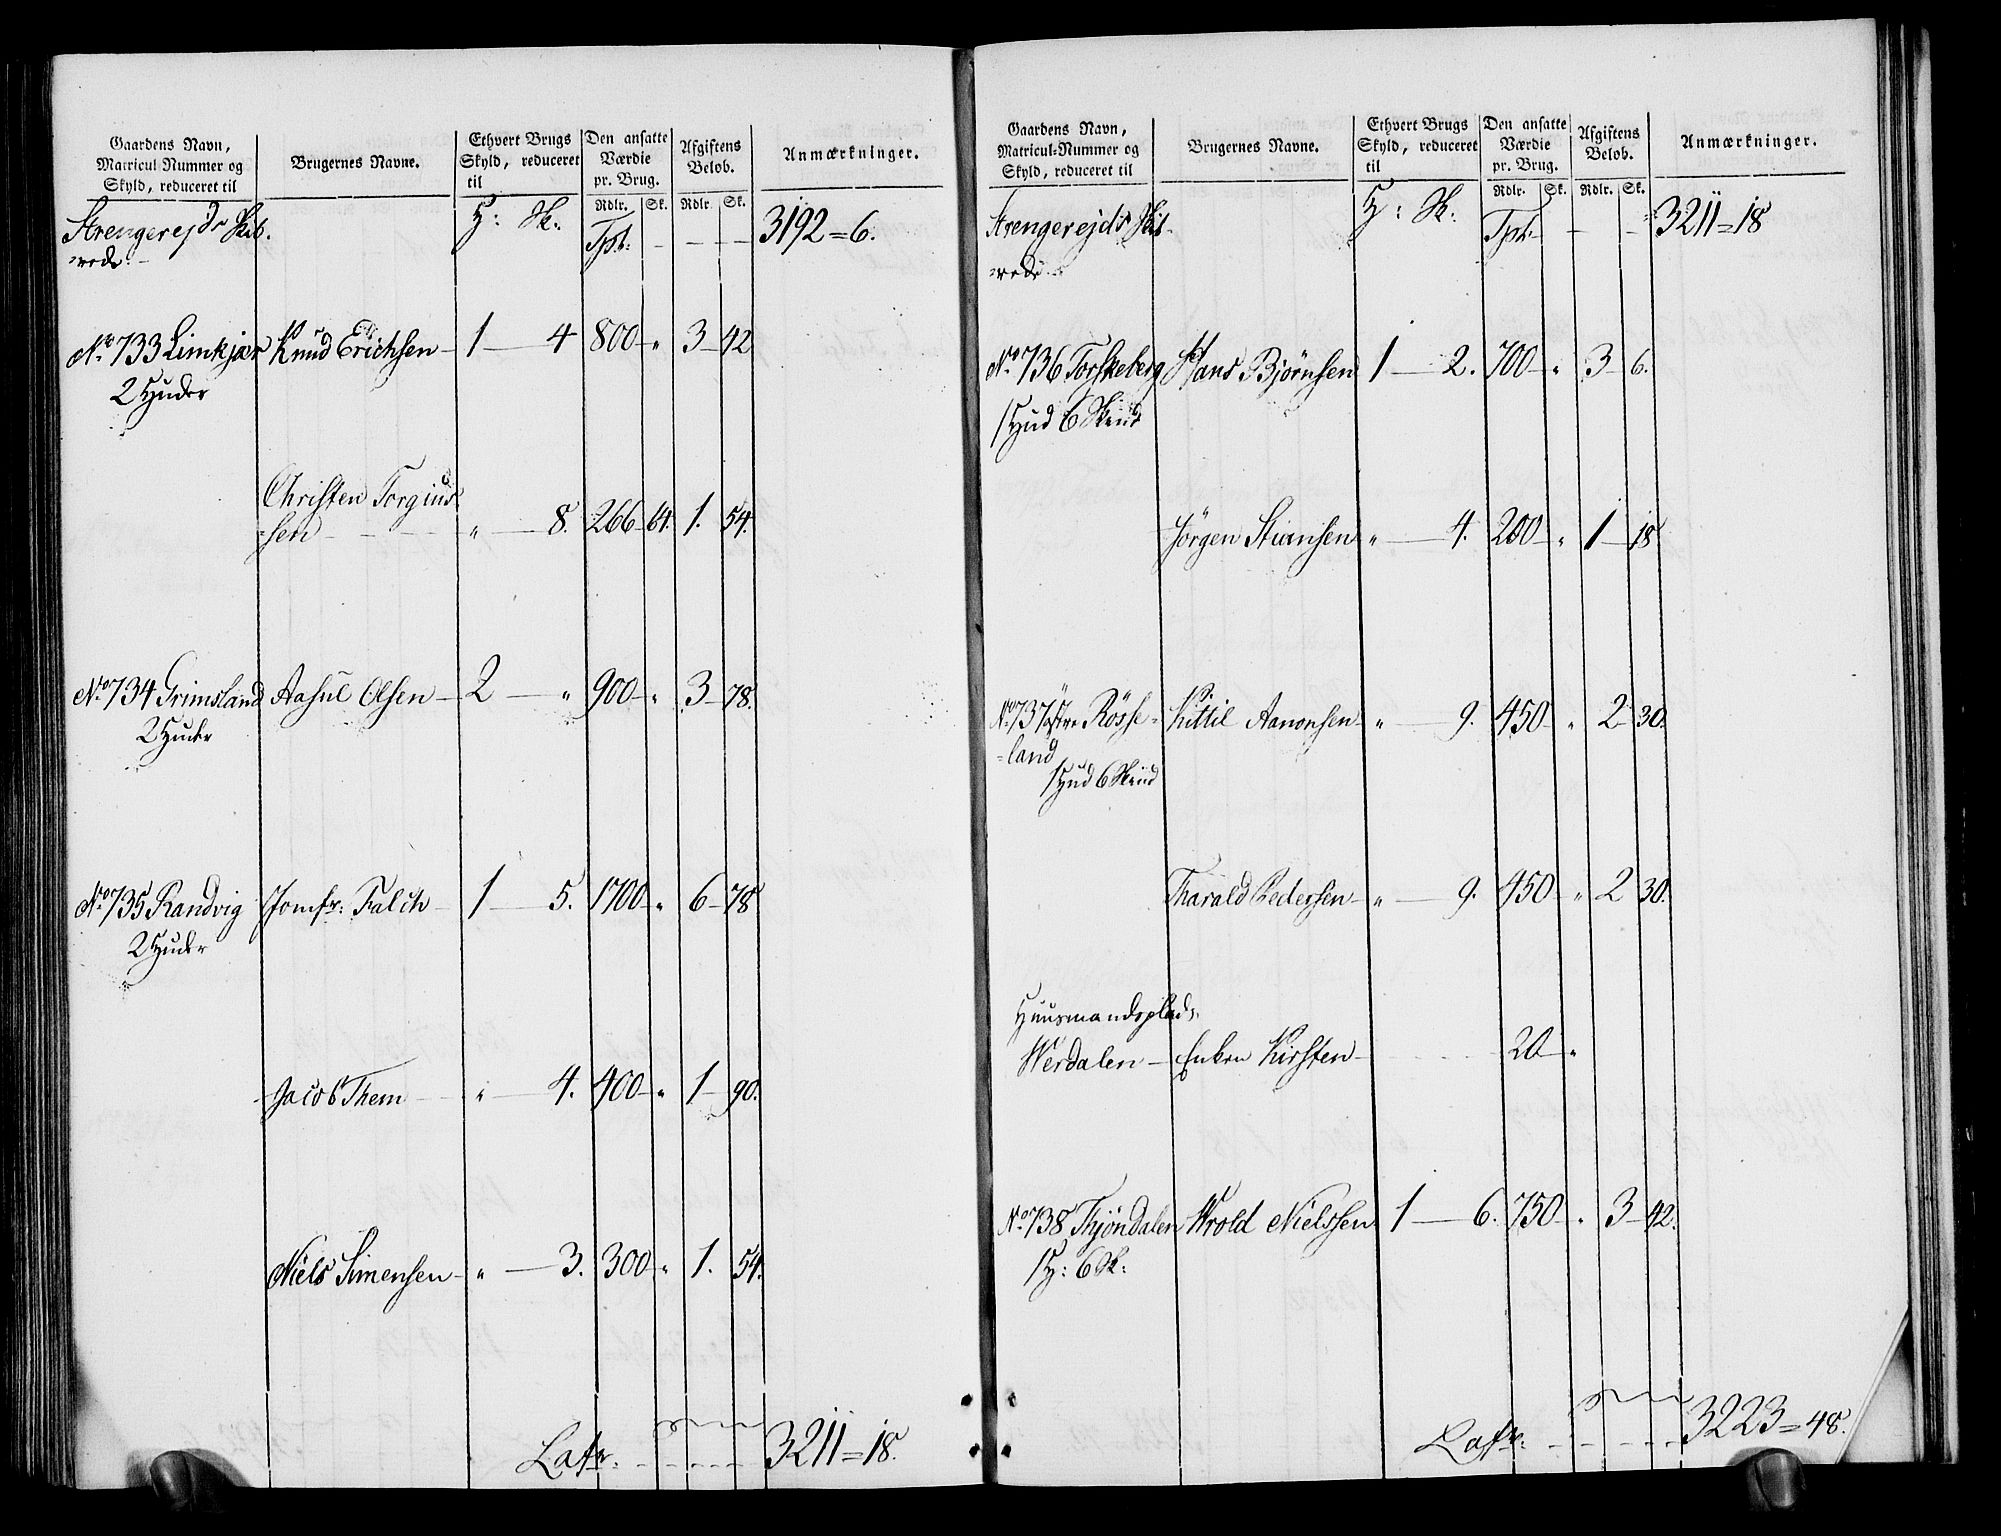 Gaardens Navn,
Matricul-Nummer og
Skyld, reduceret til
Brugernes Navne.
Ethvert Brugs
Skyld, reduceret
til
Den ansatte
Værdie
pr. Brug.
Afgiftens
Beløb.
Anmærkninger.
Rdlr. Sk. Rdlr. Sk.
Strengerejds Skib- H: Sk: Tpt: - - - 3192=6.
=rede.
No 733 Limkjær Knud Erichsen 1 4 800 " 3 42
2 Huder
Christen Torgius-
=sen " 8. 266 64. 1. 54.
No 734 Grimsland Aasul Olsen 2 " 900 " 3 78.
2 Huder
No 735 Randvig Jomfr: Falch 1 5. 1700 " 6 78
2 Huder
Jacob Them " 4. 400 " 1 90.
Niels Simensen " 3. 300 " 1. 54.
Latr: 3211=18.
Gaardens Navn,
Matricul-Nummer og
Skyld, reduceret til
Brugernes Navne.
Ethvert Brugs
Skyld, reduceret
til
Den ansatte
Værdie
pr. Brug.
Afgiftens
Beløb.
Anmærkninger.
Rdlr. Sk. Rdlr. Sk.
Strengerejds Skib- H: Sk: Tpt: - - 3211=18
=rede
No 736 Torskeberg Hans Bjørnsen 1 2. 700 " 3 6.
1 Hud 6 Skind
Jörgen Stiansen " 4. 200 " 1 18
No 737 østre Rösse= Kittil Aanonsen " 9. 450 " 2 30.
=land
1 Hud 6 Skind
Tharald Pedersen " 9. 450 " 2 30.
Huusmandsplads
Werdalen Enken Kirsten 20 "
No 738 Thjöndalen Wrold Nielssen 1 6. 750 " 3 42.
1 H: 6 Sk:
Latr: 3223=48.